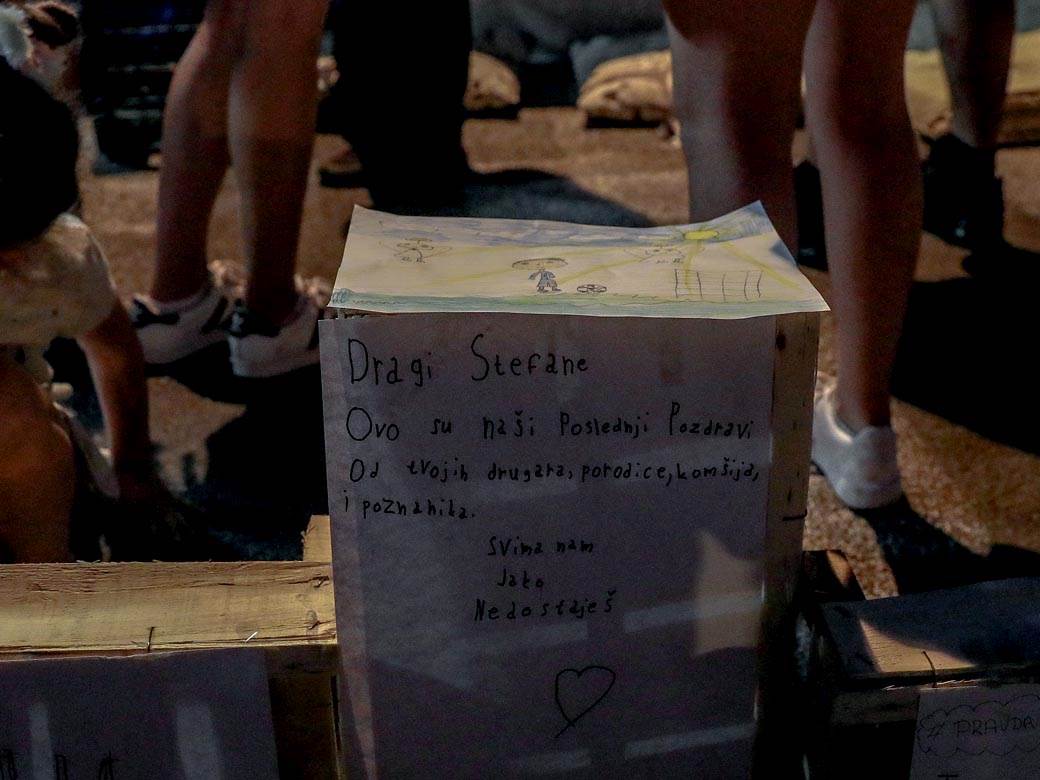 Dragi Stefane
Ovo su naši Poslednji Pozdravi
Od tvojih drugara, porodice, komšija,
i poznanika.
Svima nam
Jako
Nedostaješ
# PRAVDA